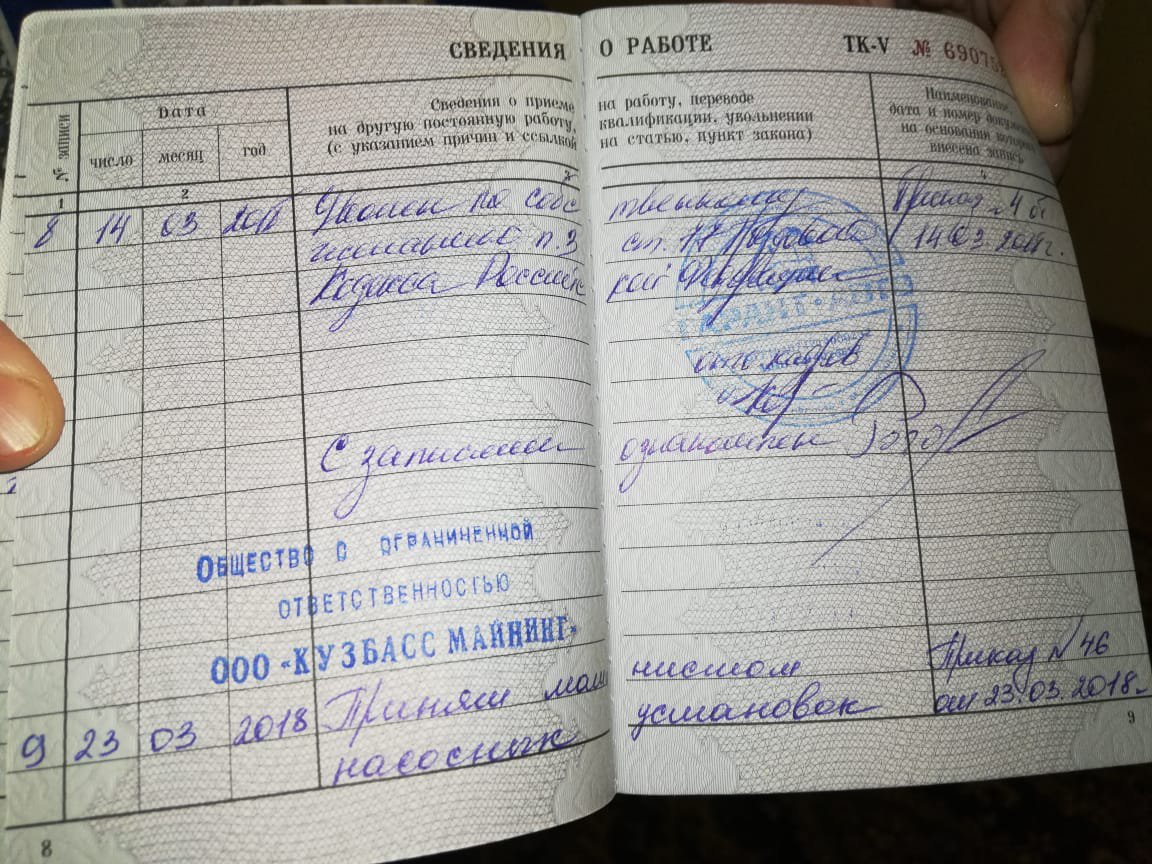 СВЕДЕНИЯ О РАБОТЕ ТК-V № 69075
№ записи
Дата
число месяц год
Сведения о приеме на работу, переводе
на другую постоянную работу, квалификации, увольнении
(с указанием причин и ссылкой на статью, пункт закона)
Наименование,
дата и номер документа,
на основании которого
внесена запись
1 2 3 4
8 14 03 Уволен по собственному Приказ №4 от
желанию п.3 ст. 77 Трудового 14.03.
Кодекса Российской Федерации
ГАРАНТ
отд. кадров
С записями ознакомлен
ОБЩЕСТВО С ОГРАНИЧЕННОЙ
ОТВЕТСТВЕННОСТЬЮ
ООО «КУЗБАСС МАЙНИНГ»
9 23 03 2018 Принят машинистом Приказ N 46
насосных установок от 23.03.2018г.
8 9